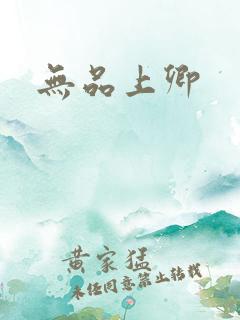 無品上卿
黄家猛
未任同意禁止转载